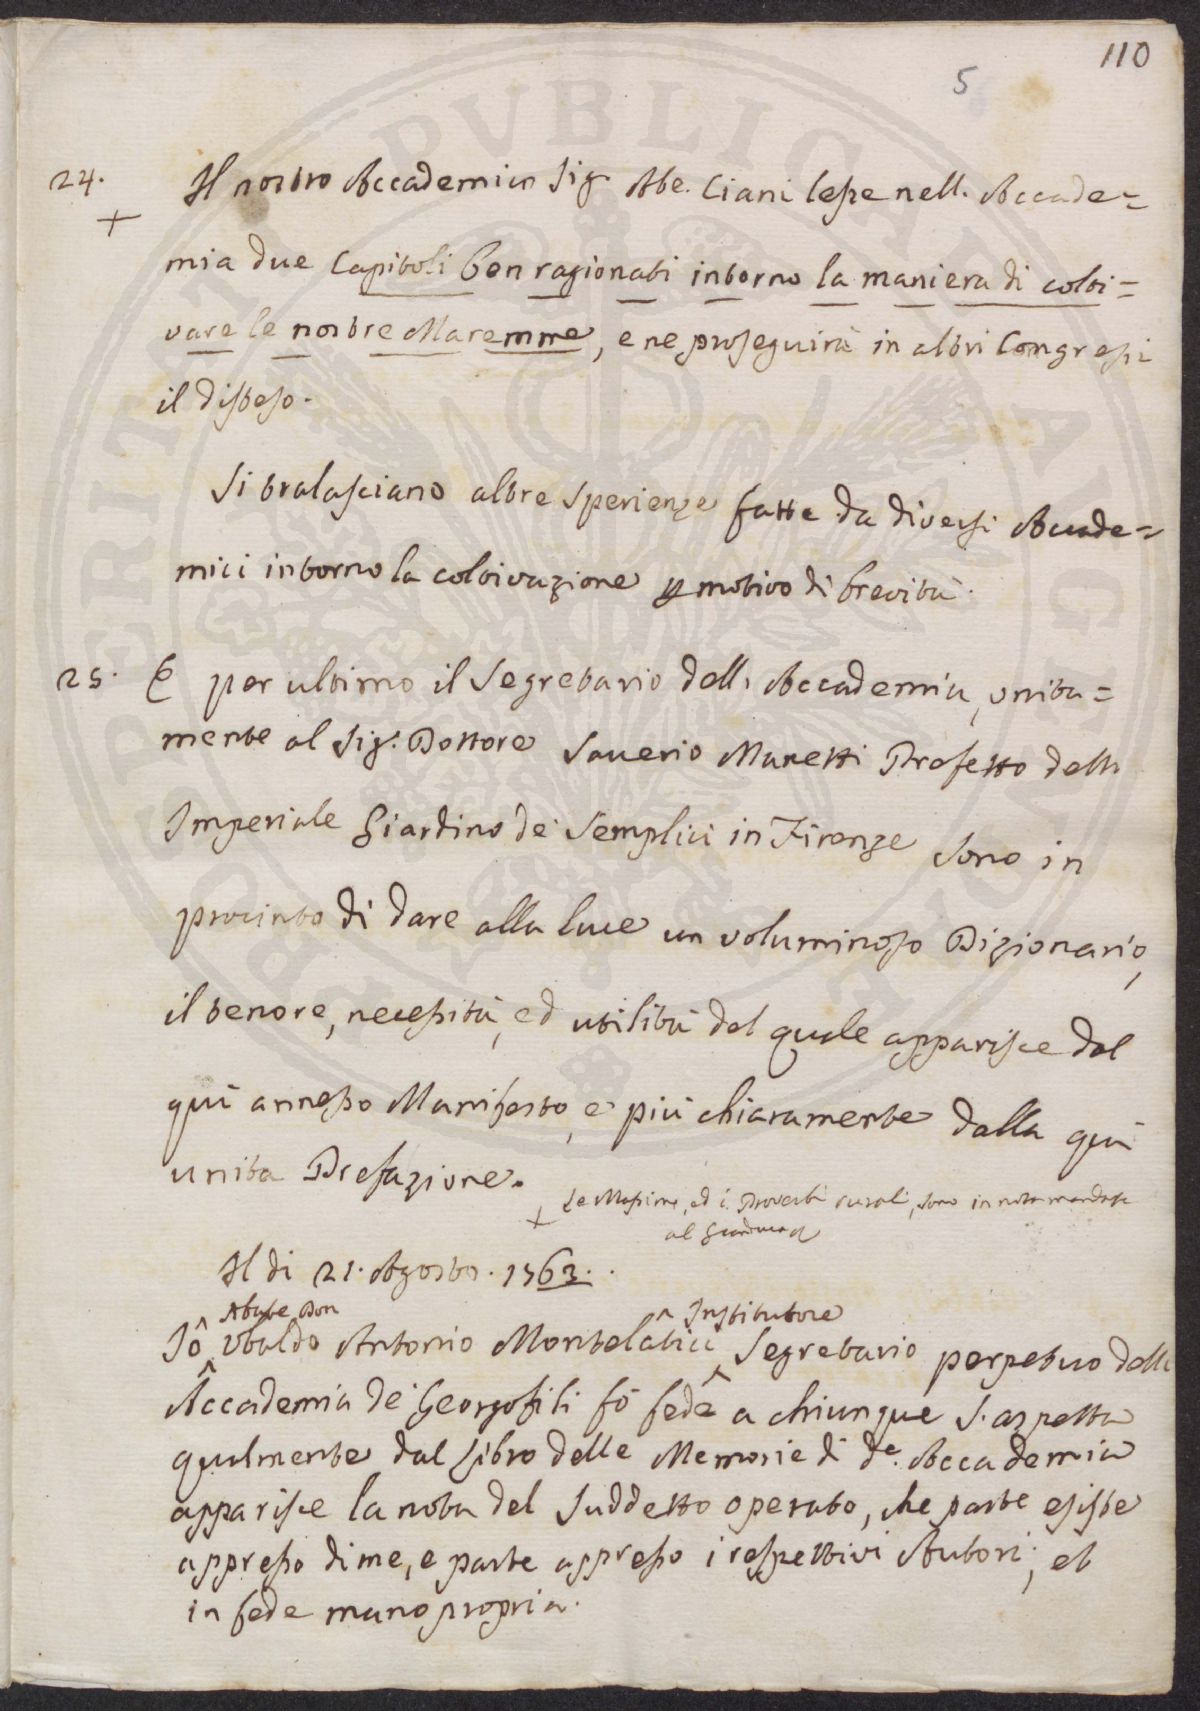 110
5
24. Il nostro Accademico Sig.r Abe. Ciani lesse nell. Accade=
+
mia due Capitoli ben ragionati intorno la maniera di colti=
vare le nostre Maremme, e ne proseguirà in altri Congressi
il disteso.
Si tralasciano altre sperienze fatte da diversi Accade=
mici intorno la coltivazione p motivo di brevità.
25. E per ultimo il Segretario dell. Accademia, unita=
mente al Sig.r Dottore Saverio Manetti Prefetto dell.
Imperiale Giardino de' Semplici in Firenze sono in
procinto di dare alla luce un voluminoso Dizionario,
il tenore, necessità, ed utilità del quale apparisce dal
quì annesso Manifesto, e più chiaramente dalla quì
unita Prefazione.
+ Le Massime, ed i Proverbi rurali, sono in nota mandate
al
Il dì 21. Agosto. 1763.
Abate Don Institutore
Io Ubaldo Antonio Montelatici Segretario perpetuo dell.
Accademia de' Georgofili fò fede a chiunque s. aspetta
qualmente dal Libro delle Memorie di d.a Accademia
apparisce la nota del suddetto operato, che parte esiste
appresso di me, e parte appresso i respettivi Autori; et
in fede mano propria.